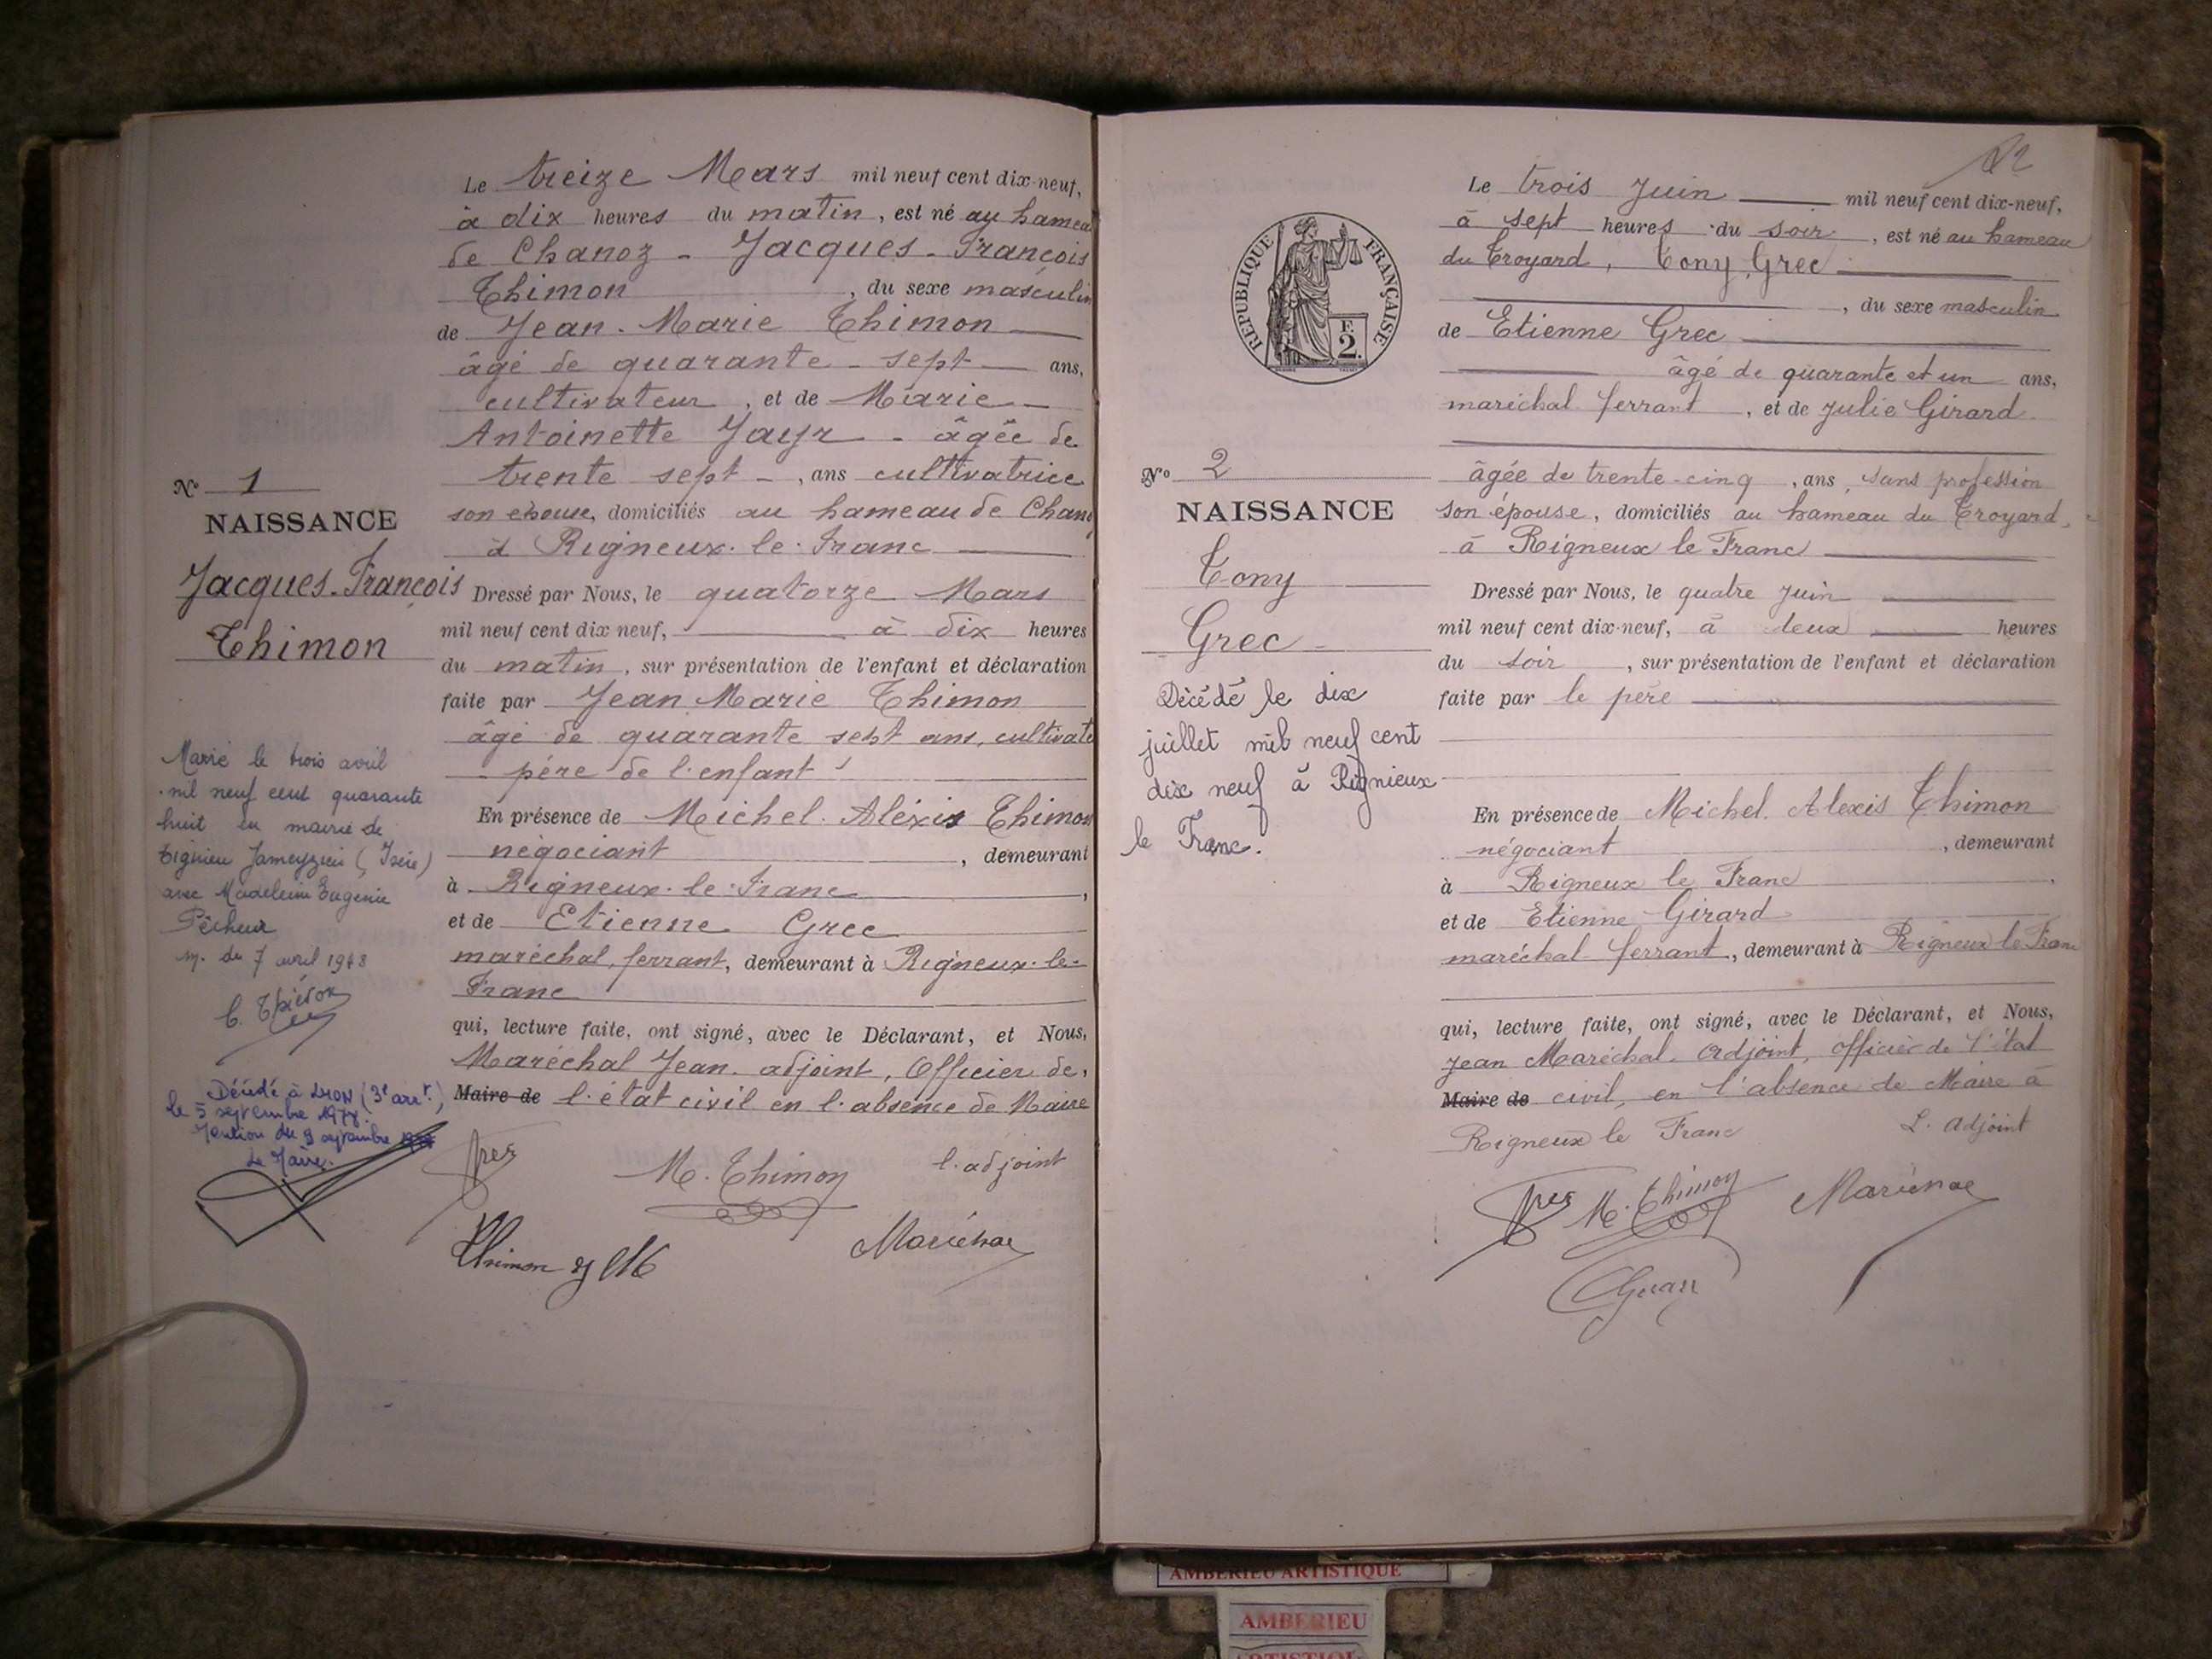 Le treize Mars mil neuf cent dix-neuf,
à dix heures du matin, est né au hameau
de Chanoz - Jacques-François
Thimon, du sexe masculin
de Jean-Marie Thimon
âgé de quarante-sept ans,
cultivateur, et de Marie
Antoinette Jayr - âgée de
trente sept -, ans cultivatrice
son épouse, domiciliés au hameau de Chano
à Rigneux-le-Franc
N° 1
NAISSANCE
Jacques-François
Thimon
Dressé par Nous, le quatorze Mars
mil neuf cent dix neuf, à dix heures
du matin, sur présentation de l'enfant et déclaration
faite par Jean Marie Thimon
âgé de quarante sept ans, cultivate
père de l'enfant
En présence de Michel Aléxis Thimon
négociant, demeurant
à Rigneux-le-Franc,
et de Etienne Grec
maréchal ferrant, demeurant à Rigneux-le-
Franc
qui, lecture faite, ont signé, avec le Déclarant, et Nous,
Maréchal Jean adjoint, Officier de,
Maire de l'état civil en l'absence de Maire
Marié le trois avril
mil neuf cent quarante
huit en mairie de
Tignieu Jameyzieu (Isère)
avec Madeleine Eugénie
Pêcheur
m. du 7 avril 1948
Décédé à LYON (3e arrt.)
le 5 septembre 1978.
Mention du 9 septembre
Le Maire.
M. Thimon
l'adjoint
Thimon JM
Maréchal
RÉPUBLIQUE FRANÇAISE
F.
2.
Le trois Juin mil neuf cent dix-neuf,
à sept heures du soir, est né au hameau
du Troyard, Tony Grec
, du sexe masculin
de Etienne Grec
âgé de quarante et un ans,
maréchal ferrant, et de Julie Girard
âgée de trente-cinq, ans, sans profession
son épouse, domiciliés au hameau du Troyard,
à Rigneux le Franc
N° 2
NAISSANCE
Tony
Grec
Décédé le dix
juillet mil neuf cent
dix neuf à Rignieux
le Franc.
Dressé par Nous, le quatre Juin
mil neuf cent dix-neuf, à deux heures
du soir, sur présentation de l'enfant et déclaration
faite par le père
En présence de Michel Alexis Thimon
négociant, demeurant
à Rigneux le Franc
et de Etienne Girard
maréchal-ferrant, demeurant à Rigneux le Franc
qui, lecture faite, ont signé, avec le Déclarant, et Nous,
Jean Maréchal adjoint, officier de l'état
Maire de civil, en l'absence de Maire à
Rigneux le Franc L'adjoint
M. Thimon
Maréchal
AMBERIEU ARTISTIQUE
AMBERIEU
ARTISTIQUE